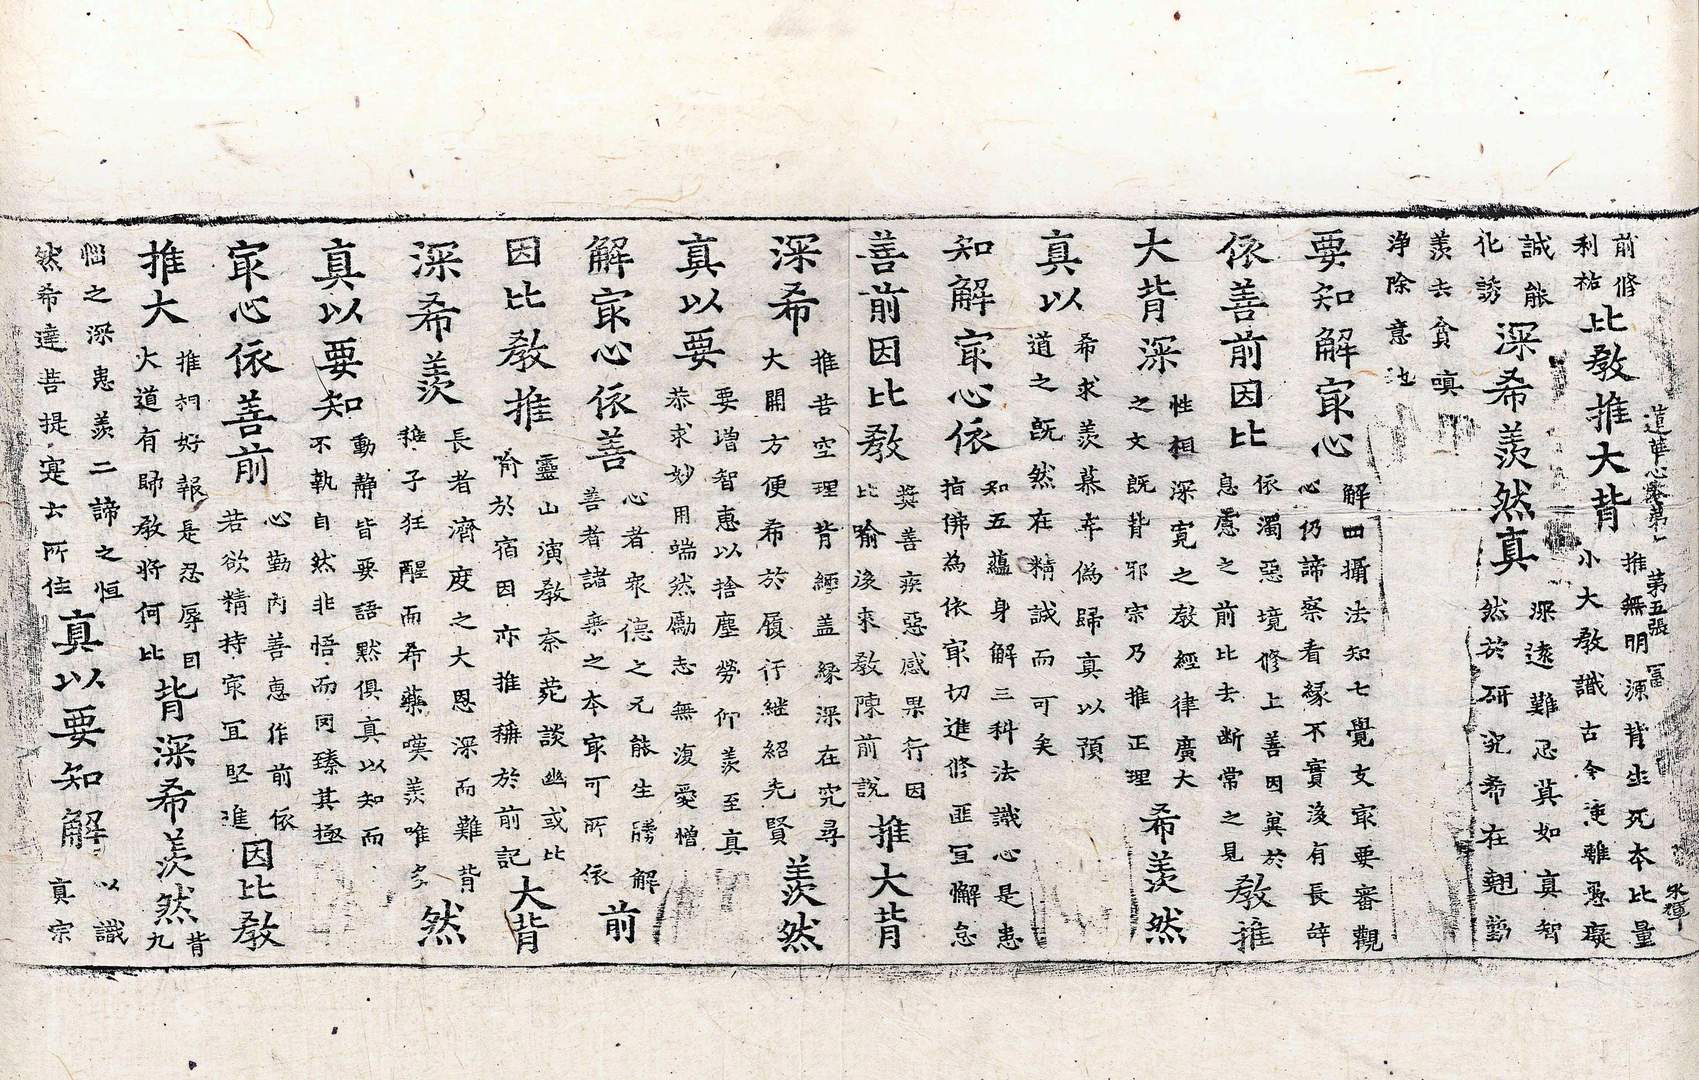 蓮華心卷第一 第五張 冨 永暉
前修
利祐
比教推大背
推無明源背生死本比量
小大教識古今迷雖愚癡
誠能
化誘
深希羨然真
深遠難忍冀如真智
然於研究希在翹勤
羨去貪嗔
淨除意地
要知解冣心
解四攝法知七覺支冣要審觀
心仍諦察看緣不實浚有長諍
依善前因比
依濁惡境修上善因冀於
息慮之前比去斷常之見
教推
大背深
性相深寬之教經律廣大
之文既背邪宗乃推正理
希羨然
真以
希求羨慕幸偽歸真以預
道之既然在精誠而可矣
知解冣心依
知五蘊身解三科法識心是患
指佛為依冣切進修匪宜懈怠
善前因比教
奬善疾惡感果行因
比喻後來教陳前說
推大背
深希
推昔空理背經蓋緣深在究尋
大開方便希於履行継紹先賢
羨然
真以要
要增智惠以捨塵勞仰羨至真
恭求妙用端然勵志無復愛憎
解冣心依善
心者衆德之元能生勝解
善者諸乘之本冣可所依
前
因比教推
靈山演教柰苑談幽或比
喻於宿因亦推稱於前記
大背
深希羨
長者濟度之大恩深而難背
稚子狂醒而希藥嘆羨唯多
然
真以要知
動静皆要語默俱真以知而
不執自然非悟而因臻其極
冣心依善前
心勤內善惠作前依
若欲精持冣宜堅進
因比教
推大
推祠好報是忍辱因
大道有歸教將何比
背深希羨然
背
九
惱之深患羨二諦之恒
然希達菩提寔六所住
真以要知解
以識
真宗